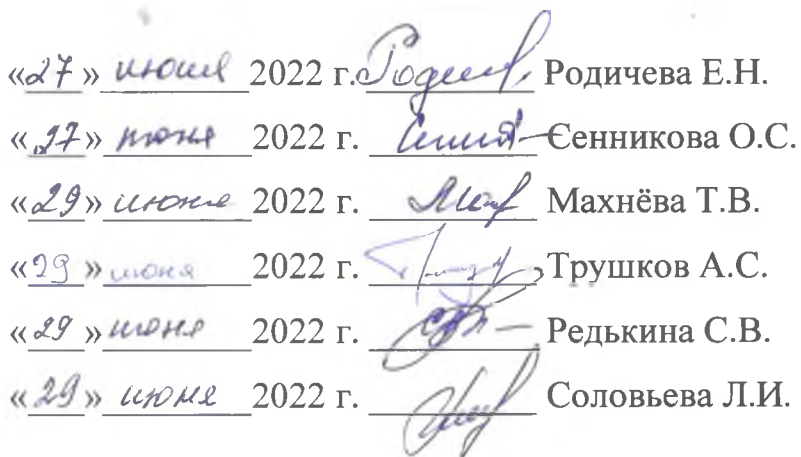 «27» июня 2022 г. Родичева Е.Н.
«27» июня 2022 г. Сенникова О.С.
«29» июня 2022 г. Махнёва Т.В.
«29» июня 2022 г. Трушков А.С.
«29» июня 2022 г. Редькина С.В.
«29» июня 2022 г. Соловьева Л.И.